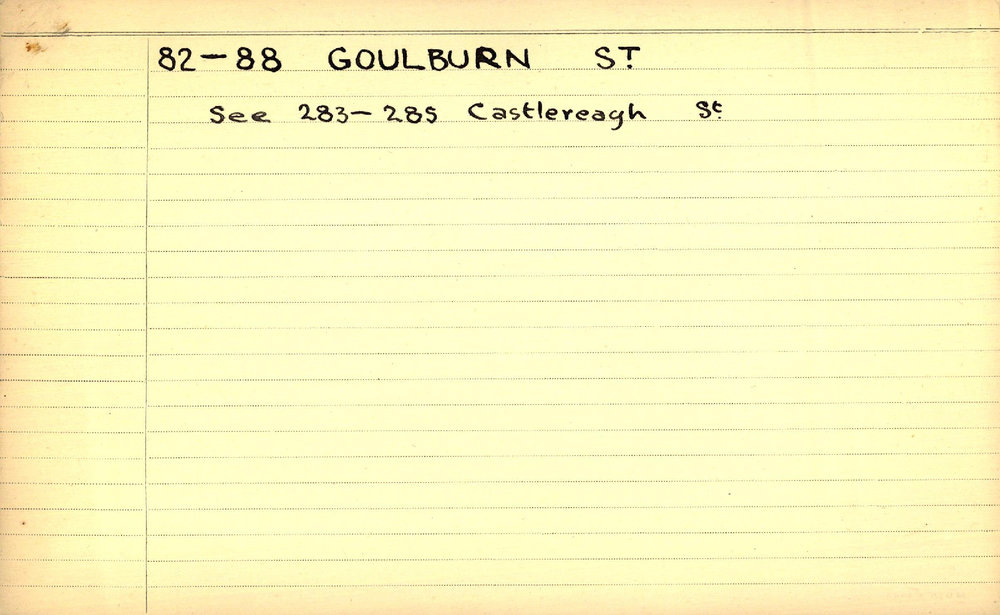 82-88 GOULBURN ST
See 283-285 Castlereagh St